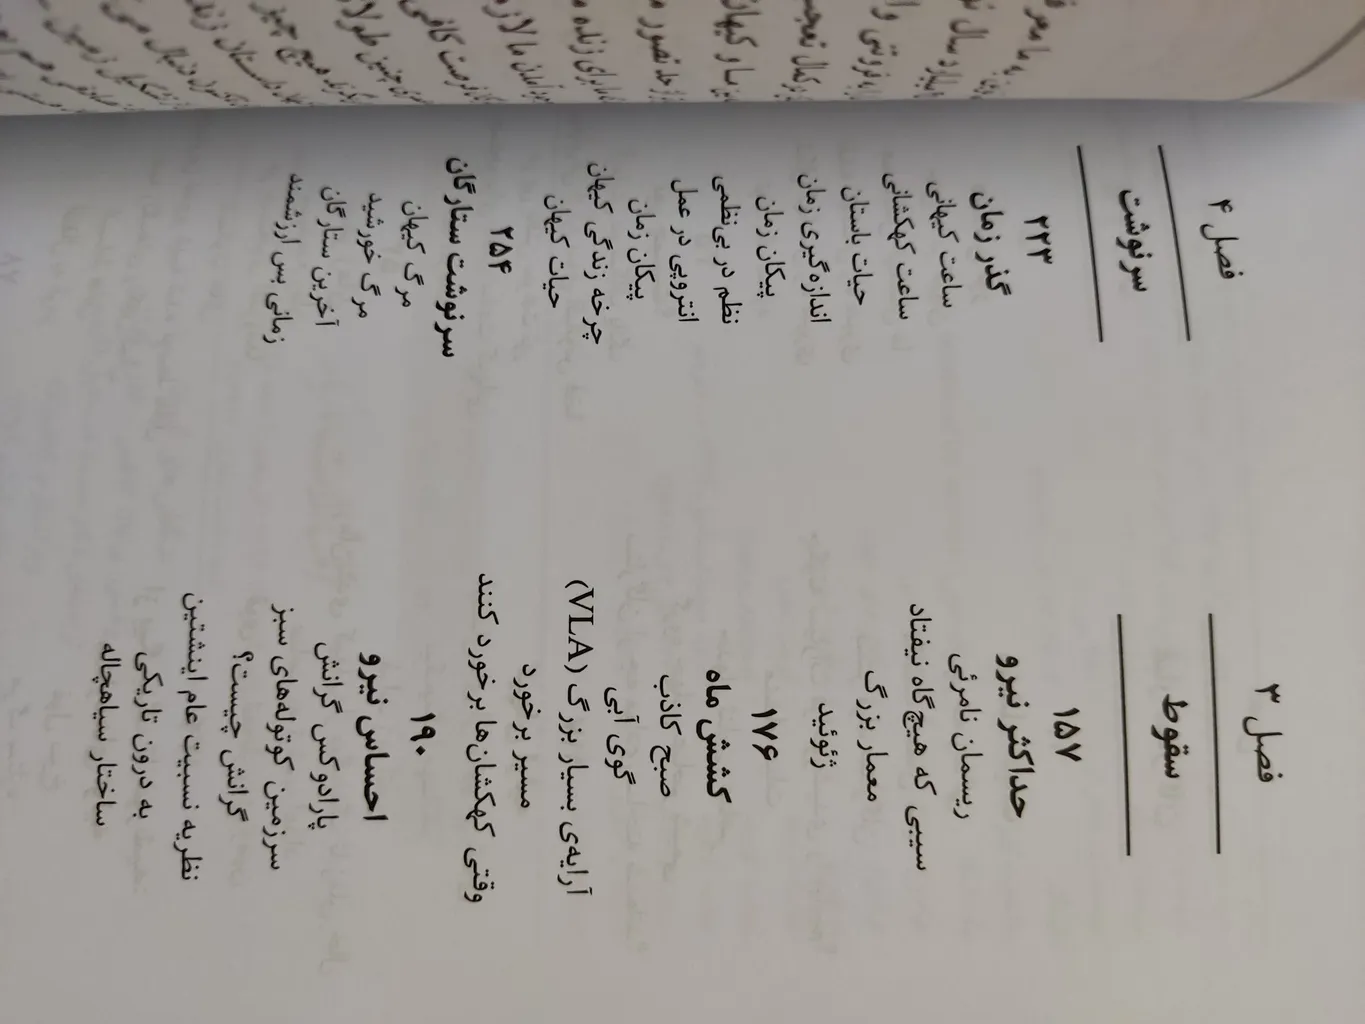 فصل ۳
سقوط
۱۵۷
حداکثر نیرو
ریسمان نامرئی
سیبی که هیچ‌گاه نیفتاد
معمار بزرگ
ژئوئید
۱۷۶
کشش ماه
صبح کاذب
گوی آبی
آرایه‌ی بسیار بزرگ (VLA)
مسیر برخورد
وقتی کهکشان‌ها برخورد کنند
۱۹۰
احساس نیرو
پارادوکس گرانش
سرزمین کوتوله‌های سبز
گرانش چیست؟
نظریه نسبیت عام اینشتین
به درون تاریکی
ساختار سیاهچاله
فصل ۴
سرنوشت
۲۲۳
گذر زمان
ساعت کیهانی
ساعت کهکشانی
حیات باستان
اندازه‌گیری زمان
پیکان زمان
نظم در بی‌نظمی
انتروپی در عمل
پیکان زمان
چرخه زندگی کیهان
حیات کیهان
۲۵۴
سرنوشت ستارگان
مرگ کیهان
مرگ خورشید
آخرین ستارگان
زمانی بس ارزشمند